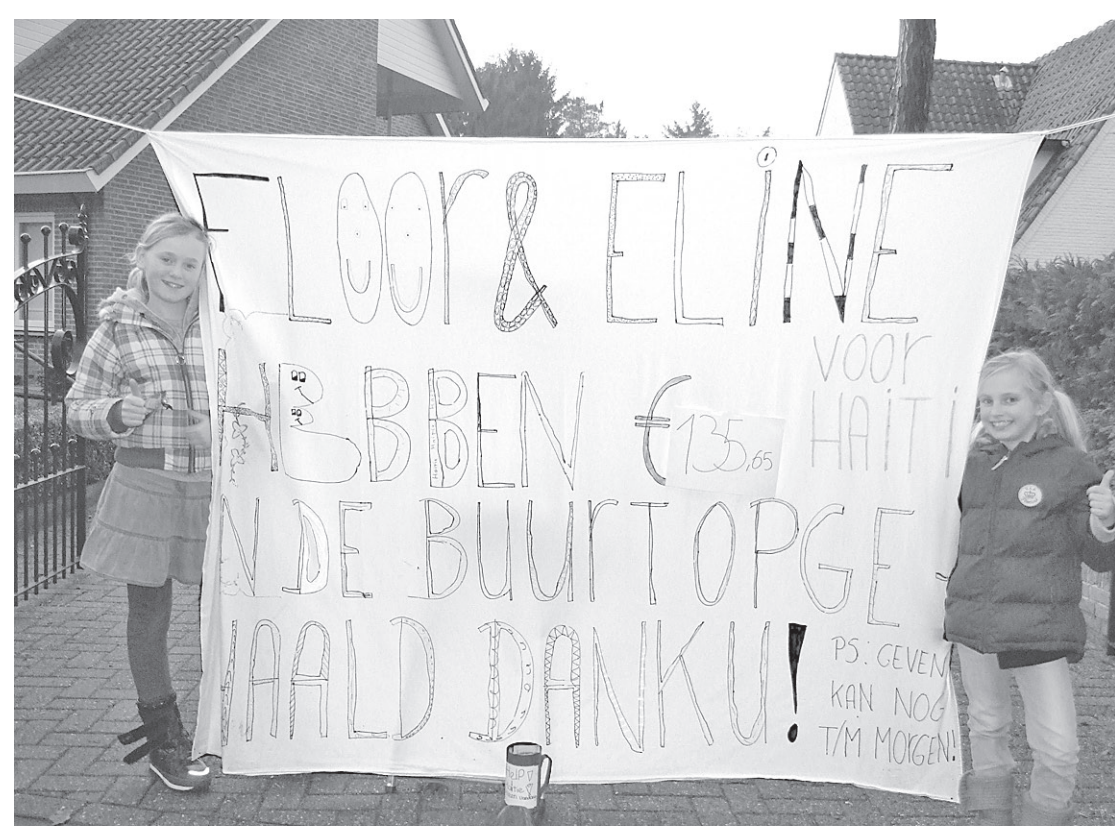 FLOOR & ELINE
HEBBEN € 135,65
VOOR
HAITI
N DE BUURT OPGE-
HAALD. DANK U!
PS: GEVEN
KAN NOG
T/M MORGEN!
HELP